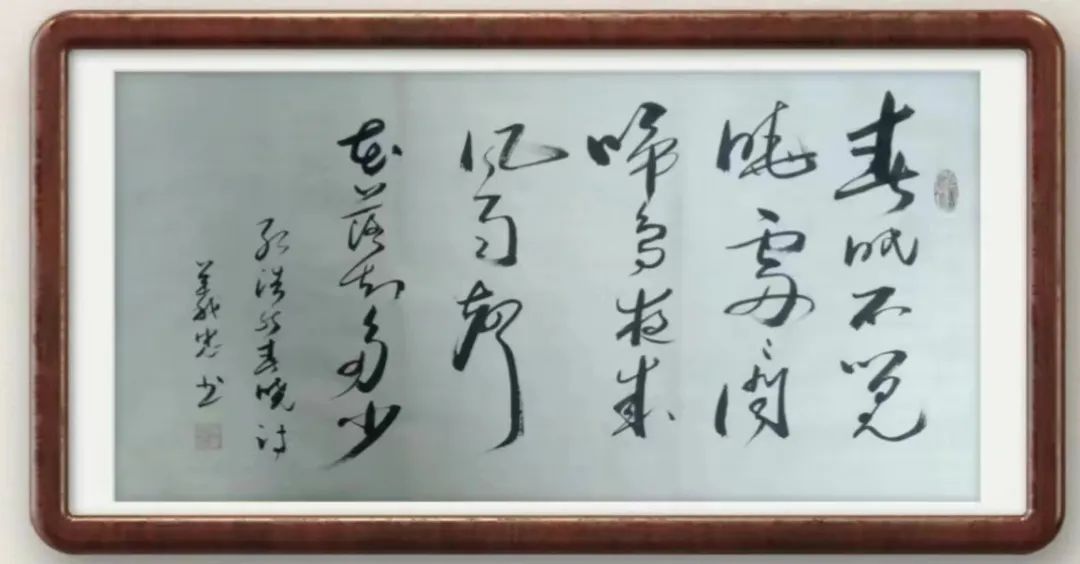 春眠不觉
晓處々闻
啼鸟夜来
风雨声
花落知多少
孟浩然春晓诗
義忠书